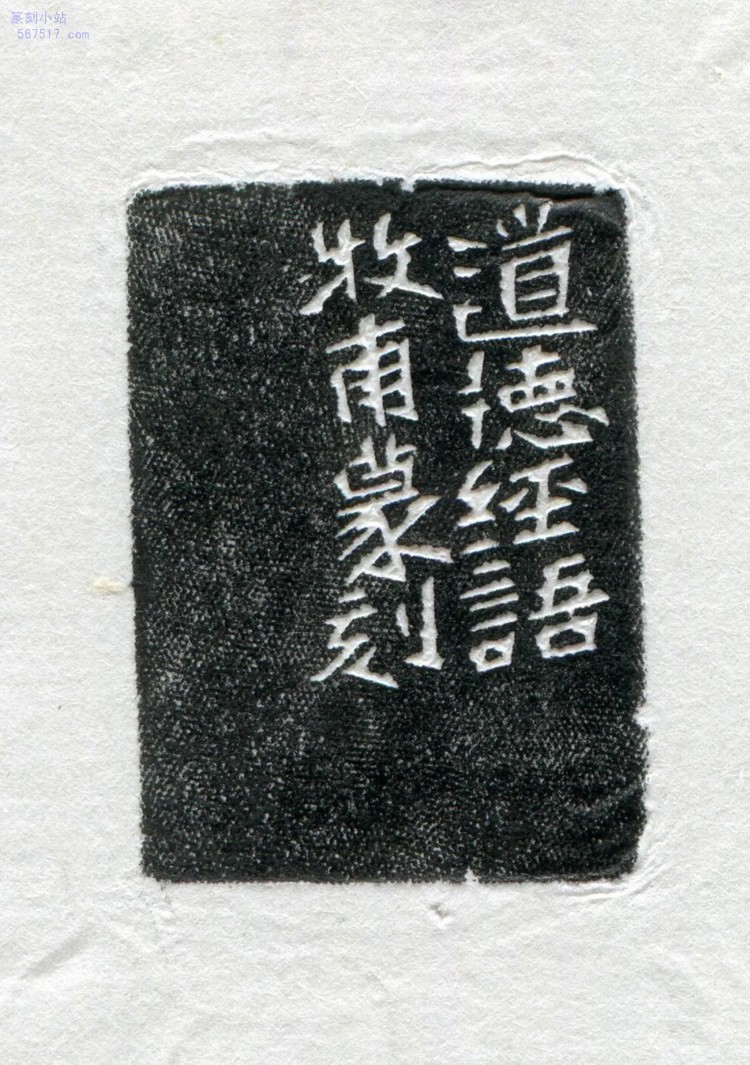 篆刻小站
567517.com
道德經語
牧甫篆刻